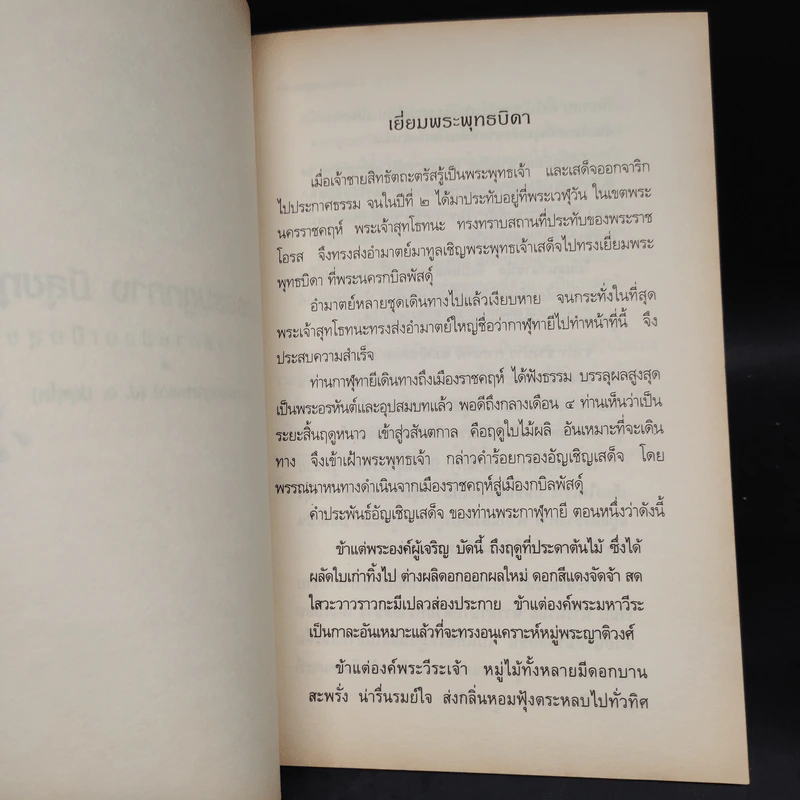 เยี่ยมพระพุทธบิดา
เมื่อเจ้าชายสิทธัตถะตรัสรู้เป็นพระพุทธเจ้า และเสด็จออกจาริก
ไปประกาศธรรม จนในปีที่ ๒ ได้มาประทับอยู่ที่พระเวฬุวัน ในเขตพระ
นครราชคฤห์ พระเจ้าสุทโธทนะ ทรงทราบสถานที่ประทับของพระราช
โอรส จึงทรงส่งอำมาตย์มาทูลเชิญพระพุทธเจ้าเสด็จไปทรงเยี่ยมพระ
พุทธบิดา ที่พระนครกบิลพัสดุ์
อำมาตย์หลายชุดเดินทางไปแล้วเงียบหาย จนกระทั่งในที่สุด
พระเจ้าสุทโธทนะทรงส่งอำมาตย์ใหญ่ชื่อว่ากาฬุทายีไปทำหน้าที่นี้ จึง
ประสบความสำเร็จ
ท่านกาฬุทายีเดินทางถึงเมืองราชคฤห์ ได้ฟังธรรม บรรลุผลสูงสุด
เป็นพระอรหันต์และอุปสมบทแล้ว พอดีถึงกลางเดือน ๔ ท่านเห็นว่าเป็น
ระยะสิ้นฤดูหนาว เข้าสู่วสันตกาล คือฤดูใบไม้ผลิ อันเหมาะที่จะเดิน
ทาง จึงเข้าเฝ้าพระพุทธเจ้า กล่าวคำร้อยกรองอัญเชิญเสด็จ โดย
พรรณนาหนทางดำเนินจากเมืองราชคฤห์สู่เมืองกบิลพัสดุ์
คำประพันธ์อัญเชิญเสด็จ ของท่านพระกาฬุทายี ตอนหนึ่งว่าดังนี้
ข้าแต่พระองค์ผู้เจริญ บัดนี้ ถึงฤดูที่ประดาต้นไม้ ซึ่งได้
ผลัดใบเก่าทิ้งไป ต่างผลิดอกออกผลใหม่ ดอกสีแดงจัดจ้า สด
ใสวะวาวราวกะมีเปลวส่องประกาย ข้าแต่องค์พระมหาวีระ
เป็นกาละอันเหมาะแล้วที่จะทรงอนุเคราะห์หมู่พระญาติวงศ์
ข้าแต่องค์พระวีระเจ้า หมู่ไม้ทั้งหลายมีดอกบาน
สะพรั่ง น่ารื่นรมย์ใจ ส่งกลิ่นหอมฟุ้งตระหลบไปทั่วทิศ